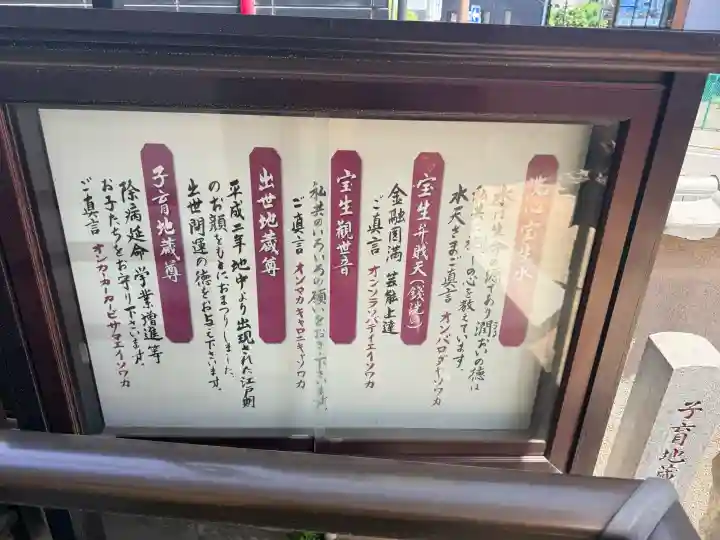 洗心宝生水
水は生命の源であり潤おいの徳は
私共に
の心を教えています。
水天さまのご真言 オンバロダヤソワカ
宝生弁財天(銭洗い)
金融円満 芸能上達
ご真言 オンソラソバテイエイソワカ
宝生観世音
私共のいろいろの願いをおきゝ下さいます。
ご真言 オンマカキャロニキャソワカ
出世地蔵尊
平成二年地中より出現された江戸期
のお顔をもとにおまつりしました。
出世開運の徳をお与え下さいます。
子育地蔵尊
除病延命 学業増進等
お子たちをお守り下さいます。
ご真言 オンカーカーカービサマエイソワカ
子育地蔵